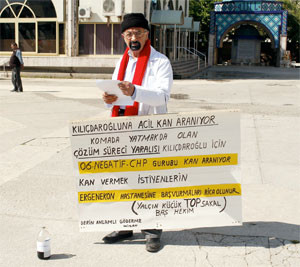 KILIÇDAROĞLUNA ACİL KAN ARANIYOR
KOMADA YATMAKDA OLAN
ÇÖZÜM SÜRECİ YARALISI KILIÇDAROĞLU İÇİN
OS-NEGATİF-CHP GURUBU KAN ARANIYOR
KAN VERMEK İSTİYENLERİN
ERGENEKON HASTANESİNE BAŞVURMALARI RİCA OLUNUR
(YALÇIN KÜÇÜK TOP SAKAL)
BAŞ HEKİM
DERİN ANLAMLI GÖNDERME